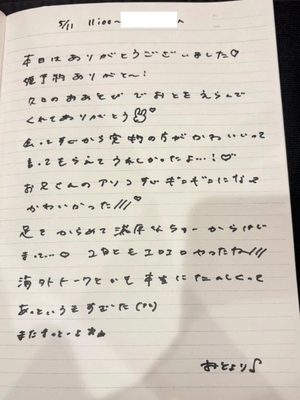 5/11 11:00〜
本日はありがとうございました♡
焼予約ありがと〜!
久々のおあそびでおとをえらんで
くれてありがとう♡
会ってすぐから実物の方がかわいいって
言ってもらえてうれしかったよ…!♡
お兄くんのアソコすぐギンギンになって
かわいかった///
足をからめて濃厚なちゅーからはじ
まって…♡ 2回ともエロエロやったね///
海外トークとかも本当にたのしくって
あっというますぎた(º_º)
またきっと〜よ
おとより♪